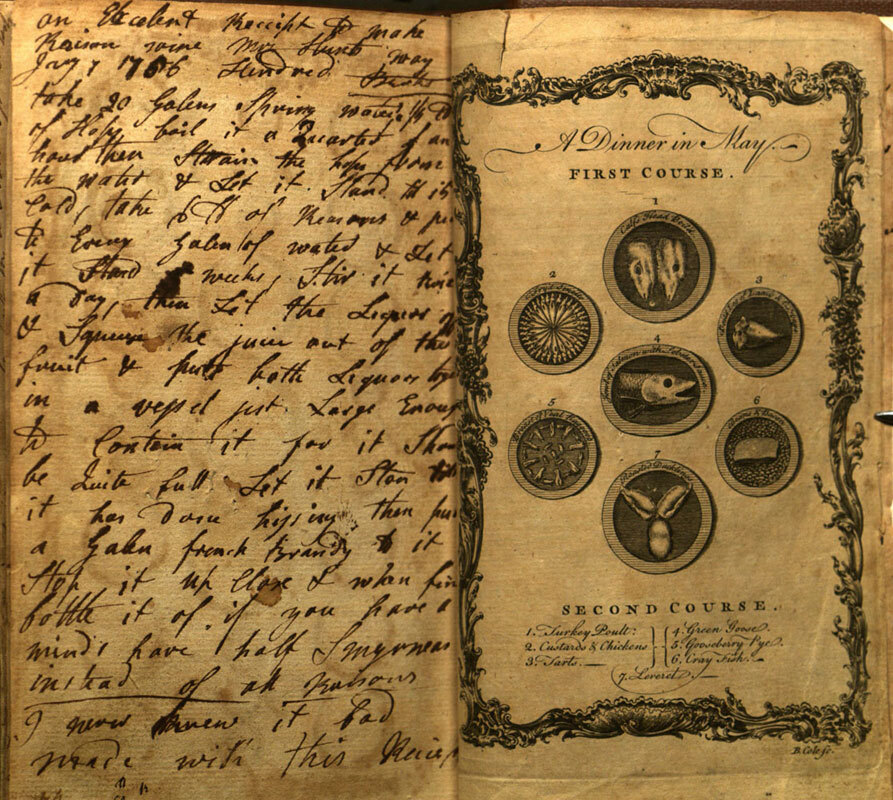 an Excelent Receipt to make
Raison wine Mrs Hunts way
July 7 1766
take 20 Galens Spring water
of Hops boil it a Quarter of an
hour then Strain the hops from
the water & Let it Stand til is
Cold, take 6 lb of Reasons & pu
to Every Galen of water & Let
it Stand weeks, Stir it twice
a Day, then Let the Liquor
& Squeese the juice out of the
fruit & put both Liquors
in a vessel just Large Enoug
to Contain it for it Shou
be Quite full Let it Stan till
it has done hissing then put
a Galen french Brandy to it
Stop it up Close & when fin
bottle it of, if you have a
mind have half Smyrneas
instead of all Raisons
I never knew it bad
made with this Receip
A Dinner in May.
FIRST COURSE.
1
Calfs Head
2
3
4
Salmon with Lobster Sauce
5
6
7
SECOND COURSE.
1. Turkey Poult:
2. Custards & Chickens
3. Tarts.
4. Green Goose.
5. Gooseberry Pye.
6. Cray Fish.
7. Leveret.
B. Cole sc.